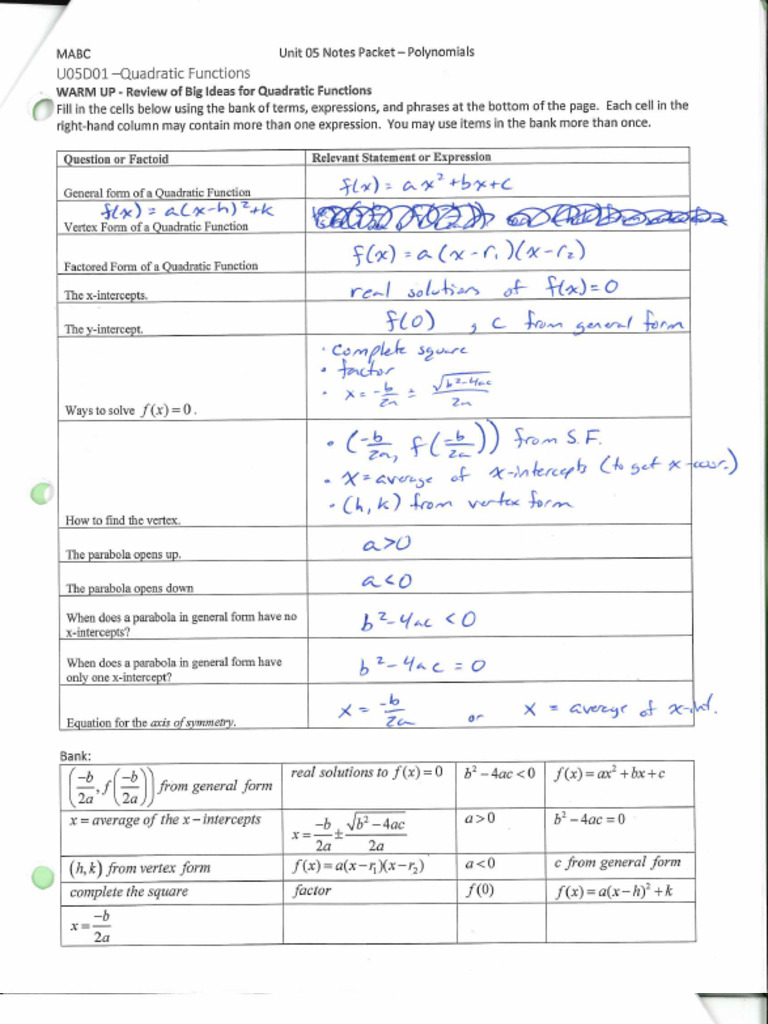 MABC Unit 05 Notes Packet – Polynomials
U05D01 –Quadratic Functions
WARM UP - Review of Big Ideas for Quadratic Functions
Fill in the cells below using the bank of terms, expressions, and phrases at the bottom of the page. Each cell in the
right-hand column may contain more than one expression. You may use items in the bank more than once.
Question or Factoid Relevant Statement or Expression
General form of a Quadratic Function f(x) = ax² + bx + c
f(x) = a(x-h)² + k
Vertex Form of a Quadratic Function
Factored Form of a Quadratic Function f(x) = a(x-r₁)(x-r₂)
The x-intercepts. real solutions of f(x) = 0
The y-intercept. f(0) , c from general form
• Complete square
• factor
• x = -b/2a ± √(b²-4ac)/2a
Ways to solve f(x) = 0.
• (-b/2a, f(-b/2a)) from S.F.
• x = average of x-intercepts (to get x-coor.)
• (h, k) from vertex form
How to find the vertex.
The parabola opens up. a>0
The parabola opens down a<0
When does a parabola in general form have no
x-intercepts? b²-4ac < 0
When does a parabola in general form have
only one x-intercept? b²-4ac = 0
Equation for the axis of symmetry. x = -b/2a or x = average of x-int.
Bank:
(-b/2a, f(-b/2a)) from general form real solutions to f(x) = 0 b² – 4ac < 0 f(x) = ax² + bx + c
x = average of the x – intercepts x = -b/2a ± √(b² – 4ac)/2a a > 0 b² – 4ac = 0
(h, k) from vertex form f(x) = a(x – r₁)(x – r₂) a < 0 c from general form
complete the square factor f(0) f(x) = a(x – h)² + k
x = -b/2a